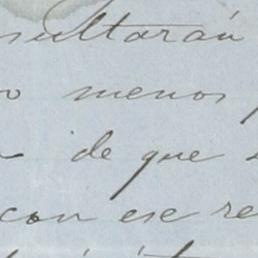 sultarán
menos
de que
con ese re